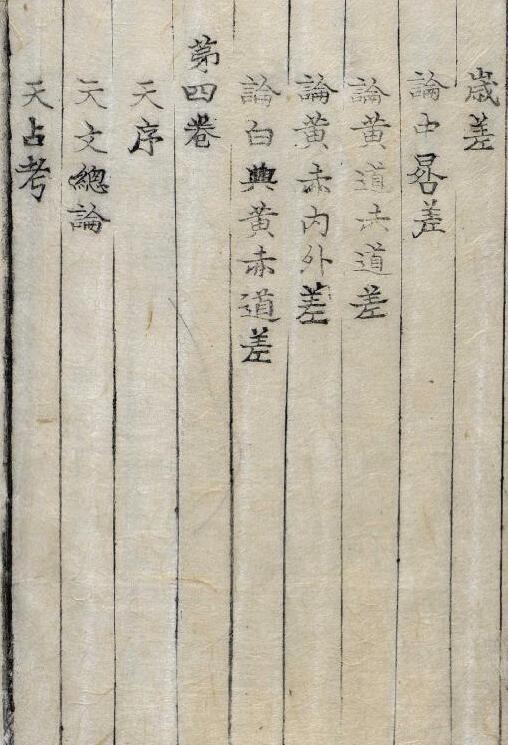 歲差
論中晷差
論黃道赤道差
論黃赤內外差
論白與黃赤道差
第四卷
天序
天文總論
天占考